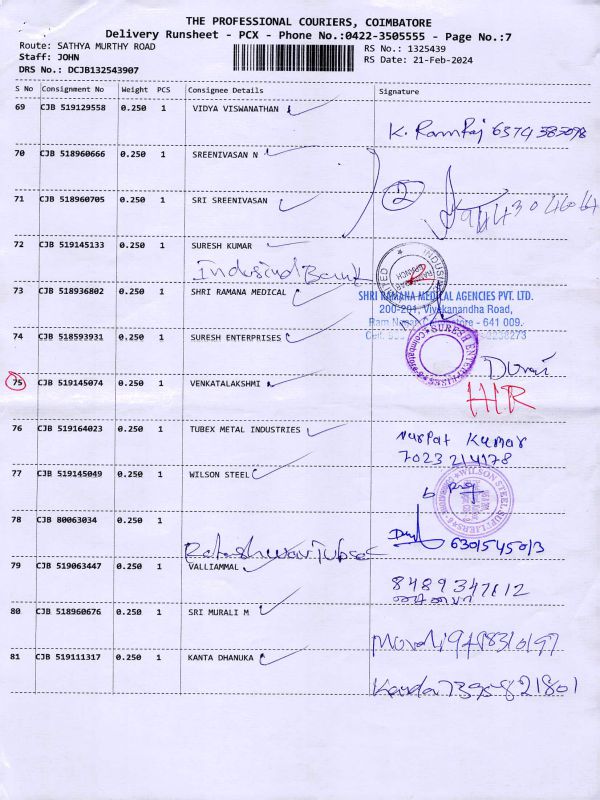 THE PROFESSIONAL COURIERS, COIMBATORE
Delivery Runsheet - PCX - Phone No.:0422-3505555 - Page No.:7
Route: SATHYA MURTHY ROAD RS No.: 1325439
Staff: JOHN RS Date: 21-Feb-2024
DRS No.: DCJB132543907
S No Consignment No Weight PCS Consignee Details Signature
69 CJB 519129558 0.250 1 VIDYA VISWANATHAN
K. Ramraj 6374383098
70 CJB 518960666 0.250 1 SREENIVASAN N
71 CJB 518960705 0.250 1 SRI SREENIVASAN
2
72 CJB 519145133 0.250 1 SURESH KUMAR
Indusind Bank
73 CJB 518936802 0.250 1 SHRI RAMANA MEDICAL
SHRI RAMANA MEDICAL AGENCIES PVT. LTD.
200-201, Vivekanandha Road,
Ram Nagar, Coimbatore - 641 009.
74 CJB 518593931 0.250 1 SURESH ENTERPRISES
SURESH ENTERPRISES
Coimbatore
75 CJB 519145074 0.250 1 VENKATALAKSHMI
HR
76 CJB 519164023 0.250 1 TUBEX METAL INDUSTRIES
Narpat Kumar
7023214178
77 CJB 519145049 0.250 1 WILSON STEEL
WILSON STEEL SUPPLIERS
78 CJB 80063034 0.250 1
6301545013
79 CJB 519063447 0.250 1 VALLIAMMAL
8489347112
80 CJB 518960676 0.250 1 SRI MURALI M
81 CJB 519111317 0.250 1 KANTA DHANUKA